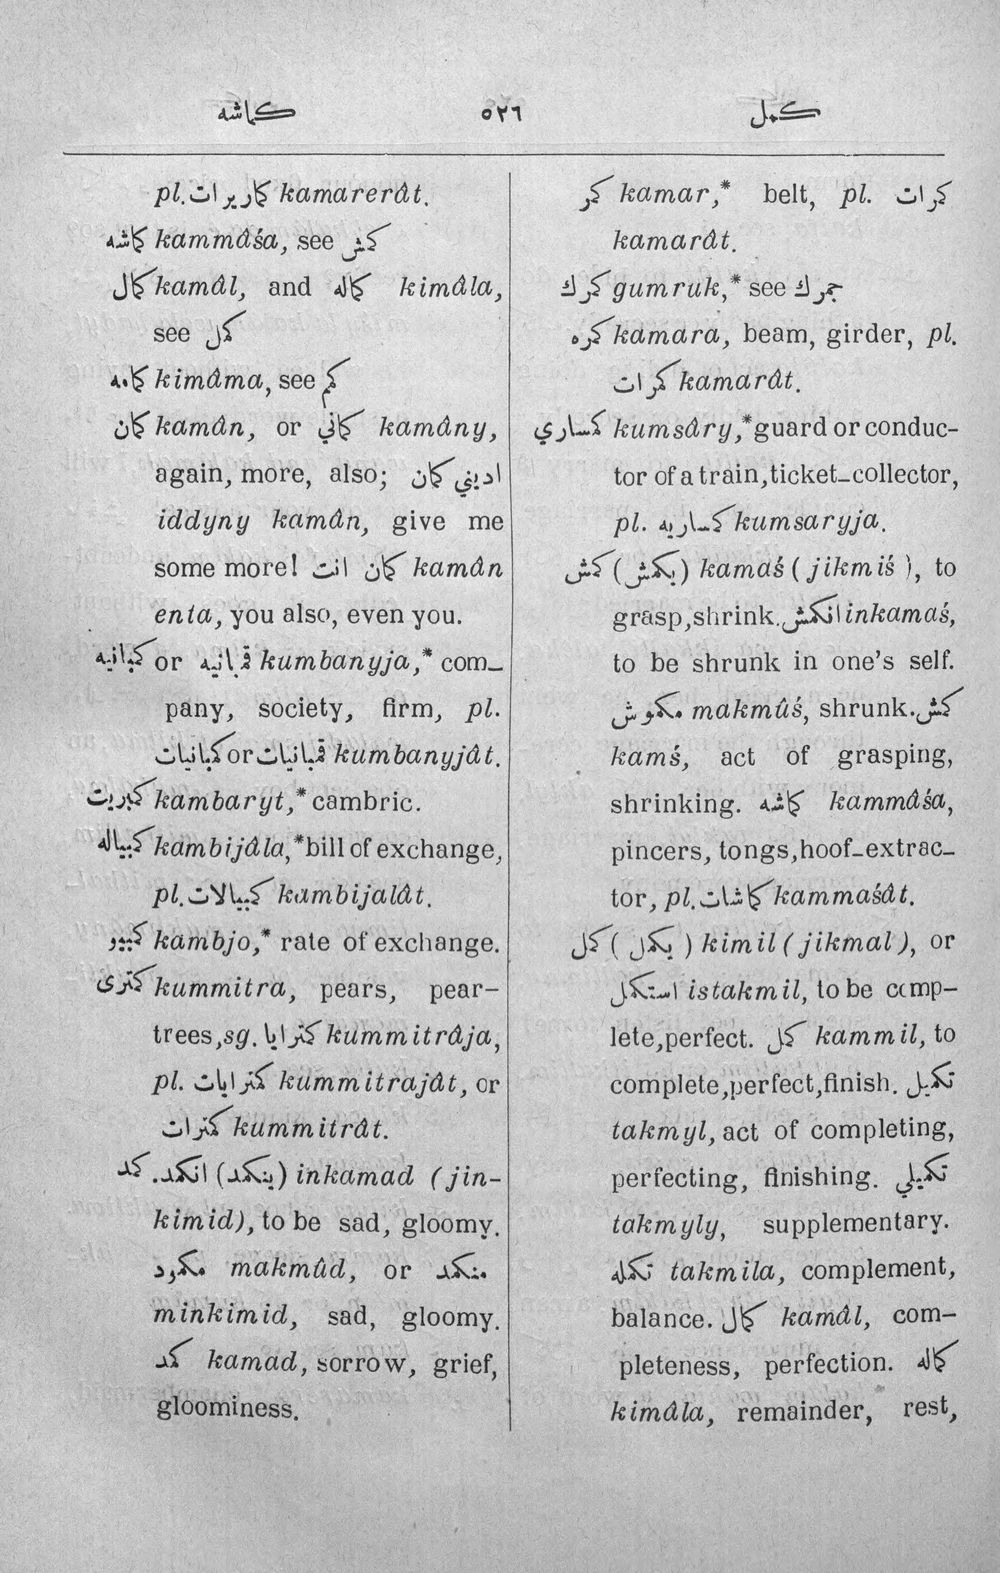 كماشه ٥٢٦ كمل
pl. كماريرات kamarerât.
كماشه kammâśa, see كمش
كمال kamâl, and كماله kimâla,
see كمل
كمامه kimâma, see كم
كمان kamân, or كماني kamâny,
again, more, also; اديني كمان
iddyny kamân, give me
some more! كمان انت kamân
enta, you also, even you.
كمبانيه or قمبانيه kumbanyja,* com-
pany, society, firm, pl.
كمبانيات or قمبانيات kumbanyjât.
كمبريت kambaryt,* cambric.
كمبياله kambijâla,* bill of exchange,
pl. كمبيالات kambijalât.
كمبيو kambjo,* rate of exchange.
كمترى kummitra, pears, pear-
trees, sg. كمترايا kummitrâja,
pl. كمترايات kummitrajât, or
كمترات kummitrât.
كمد. انكمد (ينكمد) inkamad (jin-
kimid), to be sad, gloomy.
مكمود makmûd, or منكمد
minkimid, sad, gloomy.
كمد kamad, sorrow, grief,
gloominess.
كمر kamar,* belt, pl. كمرات
kamarât.
كمرك gumruk,* see جمرك
كمره kamara, beam, girder, pl.
كمرات kamarât.
كمساري kumsâry,* guard or conduc-
tor of a train, ticket-collector,
pl. كمساريه kumsaryja.
كمش (يكمش) kamaś (jikmiś), to
grasp, shrink. انكمش inkamaś,
to be shrunk in one's self.
مكموش makmûś, shrunk. كمش
kamś, act of grasping,
shrinking. كماشه kammâśa,
pincers, tongs, hoof-extrac-
tor, pl. كماشات kammaśât.
كمل (يكمل) kimil (jikmal), or
استكمل istakmil, to be comp-
lete, perfect. كمل kammil, to
complete, perfect, finish. تكميل
takmyl, act of completing,
perfecting, finishing. تكميلي
takmyly, supplementary.
تكمله takmila, complement,
balance. كمال kamâl, com-
pleteness, perfection. كماله
kimâla, remainder, rest,